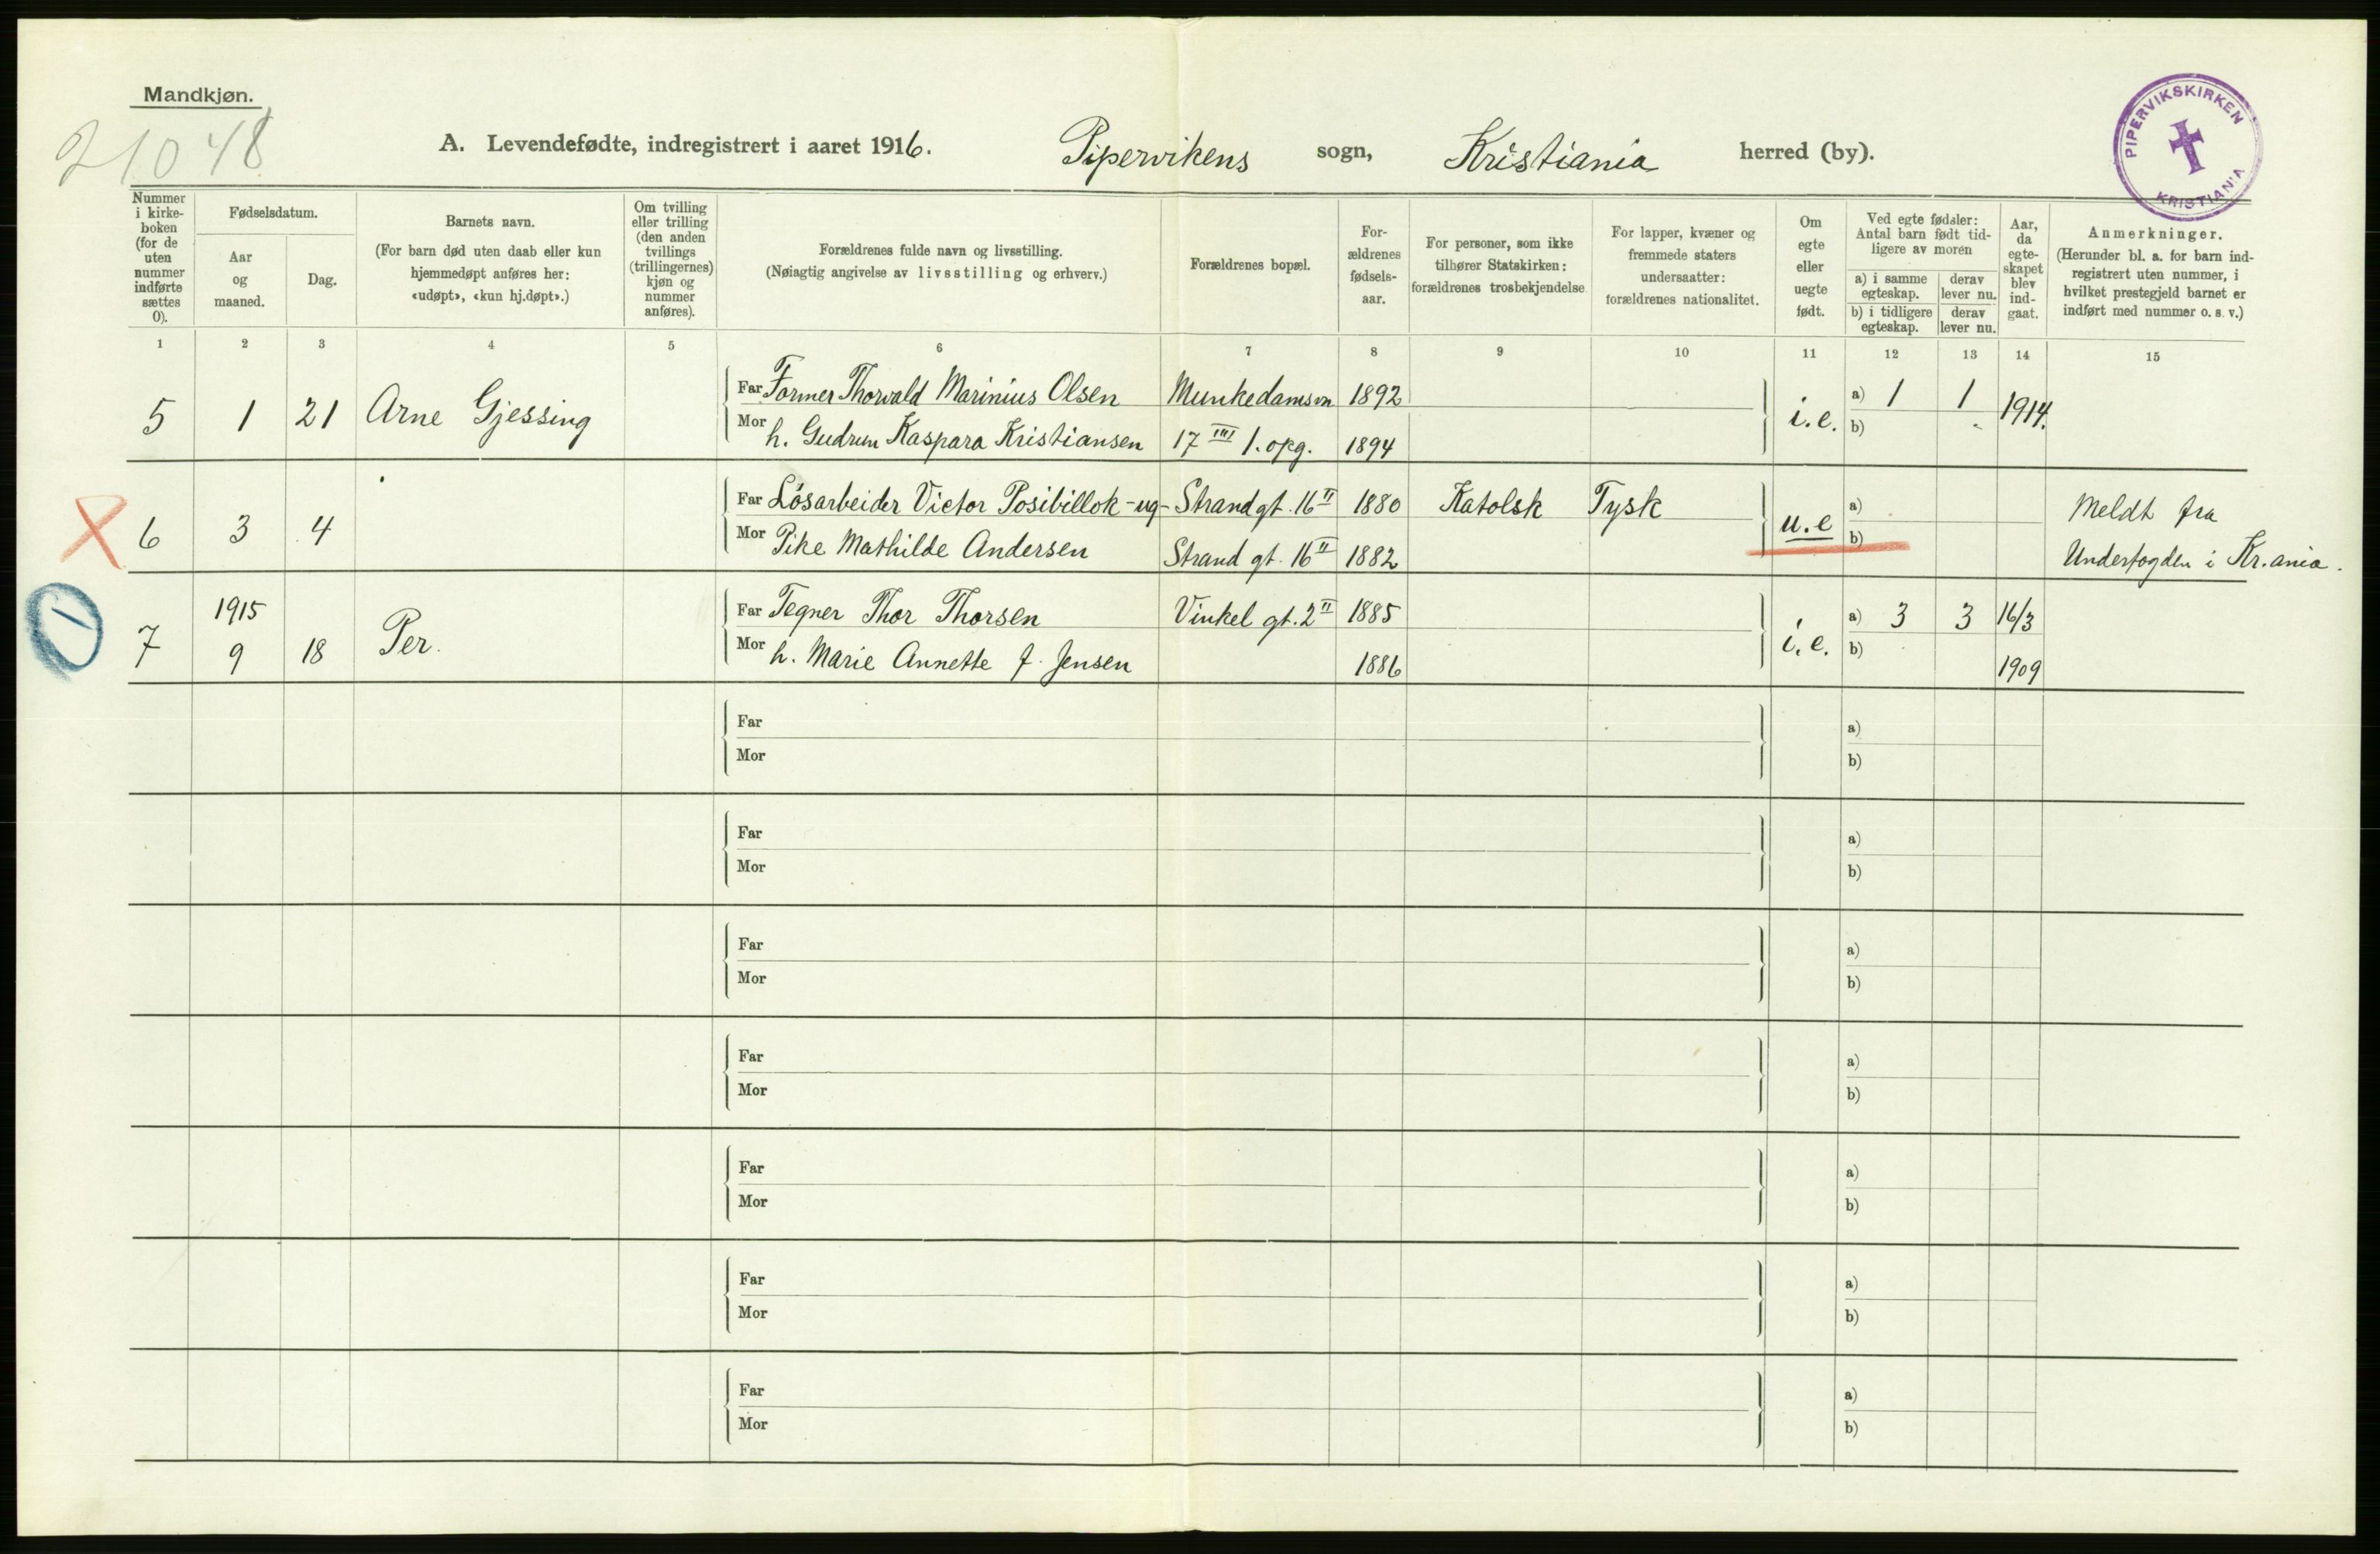 Mandkjøn.
21048
A. Levendefødte, indregistrert i aaret 1916. Pipervikens sogn, Kristiania herred (by).
PIPERVIKSKIRKEN
KRISTIANIA
Nummer i kirke-boken (for de uten nummer indførte sættes 0).
Fødselsdatum.
Aar og maaned.
Dag.
Barnets navn.
(For barn død uten daab eller kun hjemmedøpt anføres her: «udøpt», «kun hj.døpt».)
Om tvilling eller trilling (den anden tvillings (trillingernes) kjøn og nummer anføres).
Forældrenes fulde navn og livsstilling.
(Nøiagtig angivelse av livsstilling og erhverv.)
Forældrenes bopæl.
For-ældrenes fødsels-aar.
For personer, som ikke tilhører Statskirken: forældrenes trosbekjendelse
For lapper, kvæner og fremmede staters undersaatter: forældrenes nationalitet.
Om egte eller uegte født.
Ved egte fødsler: Antal barn født tid-ligere av moren
a) i samme egteskap.
derav lever nu.
b) i tidligere egteskap.
derav lever nu.
Aar, da egte-skapet blev ind-gaat.
Anmerkninger.
(Herunder bl. a. for barn ind-registrert uten nummer, i hvilket prestegjeld barnet er indført med nummer o. s. v.)
1 2 3 4 5 6 7 8 9 10 11 12 13 14 15
5 1 21 Arne Gjessing
Far Former Thorvald Marinius Olsen Munkedamsvn 1892
Mor h. Gudrun Kaspara Kristiansen 17 III 1. opg. 1894
i.e. a) 1 1 1914.
b)
6 3 4
Far Løsarbeider Victor Posibillok -ug- Strandgt. 16 II 1880 Katolsk Tysk
Mor Pike Mathilde Andersen Strand gt. 16 II 1882
u.e a)
b)
Meldt fra
Underfogden i Kr.ania.
7 1915
9 18 Per.
Far Tegner Thor Thorsen Vinkel gt. 2 II 1885
Mor h. Marie Annette f. Jensen 1886
i.e. a) 3 3 16/3
b) 1909
Far a)
Mor b)
Far a)
Mor b)
Far a)
Mor b)
Far a)
Mor b)
Far a)
Mor b)
Far a)
Mor b)
Far a)
Mor b)